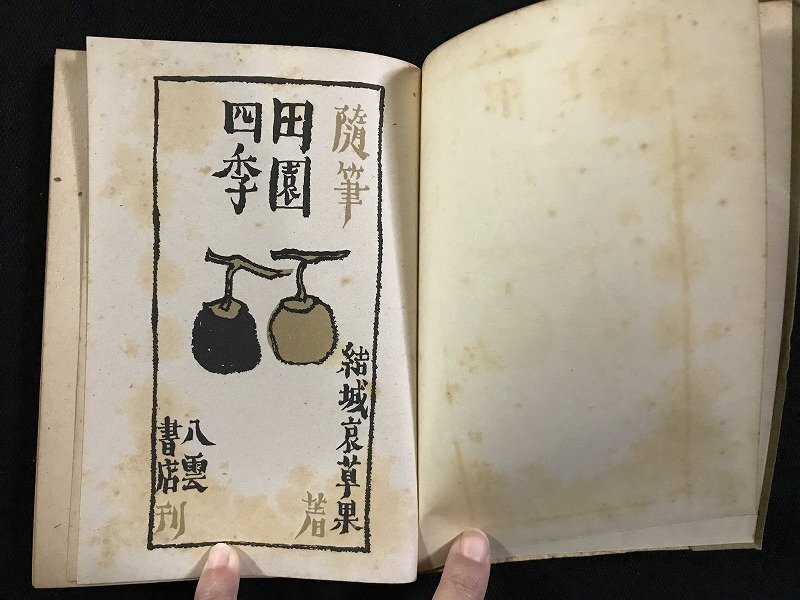 隨筆
田園
四季
結城哀草果
著
八雲
書店
刊